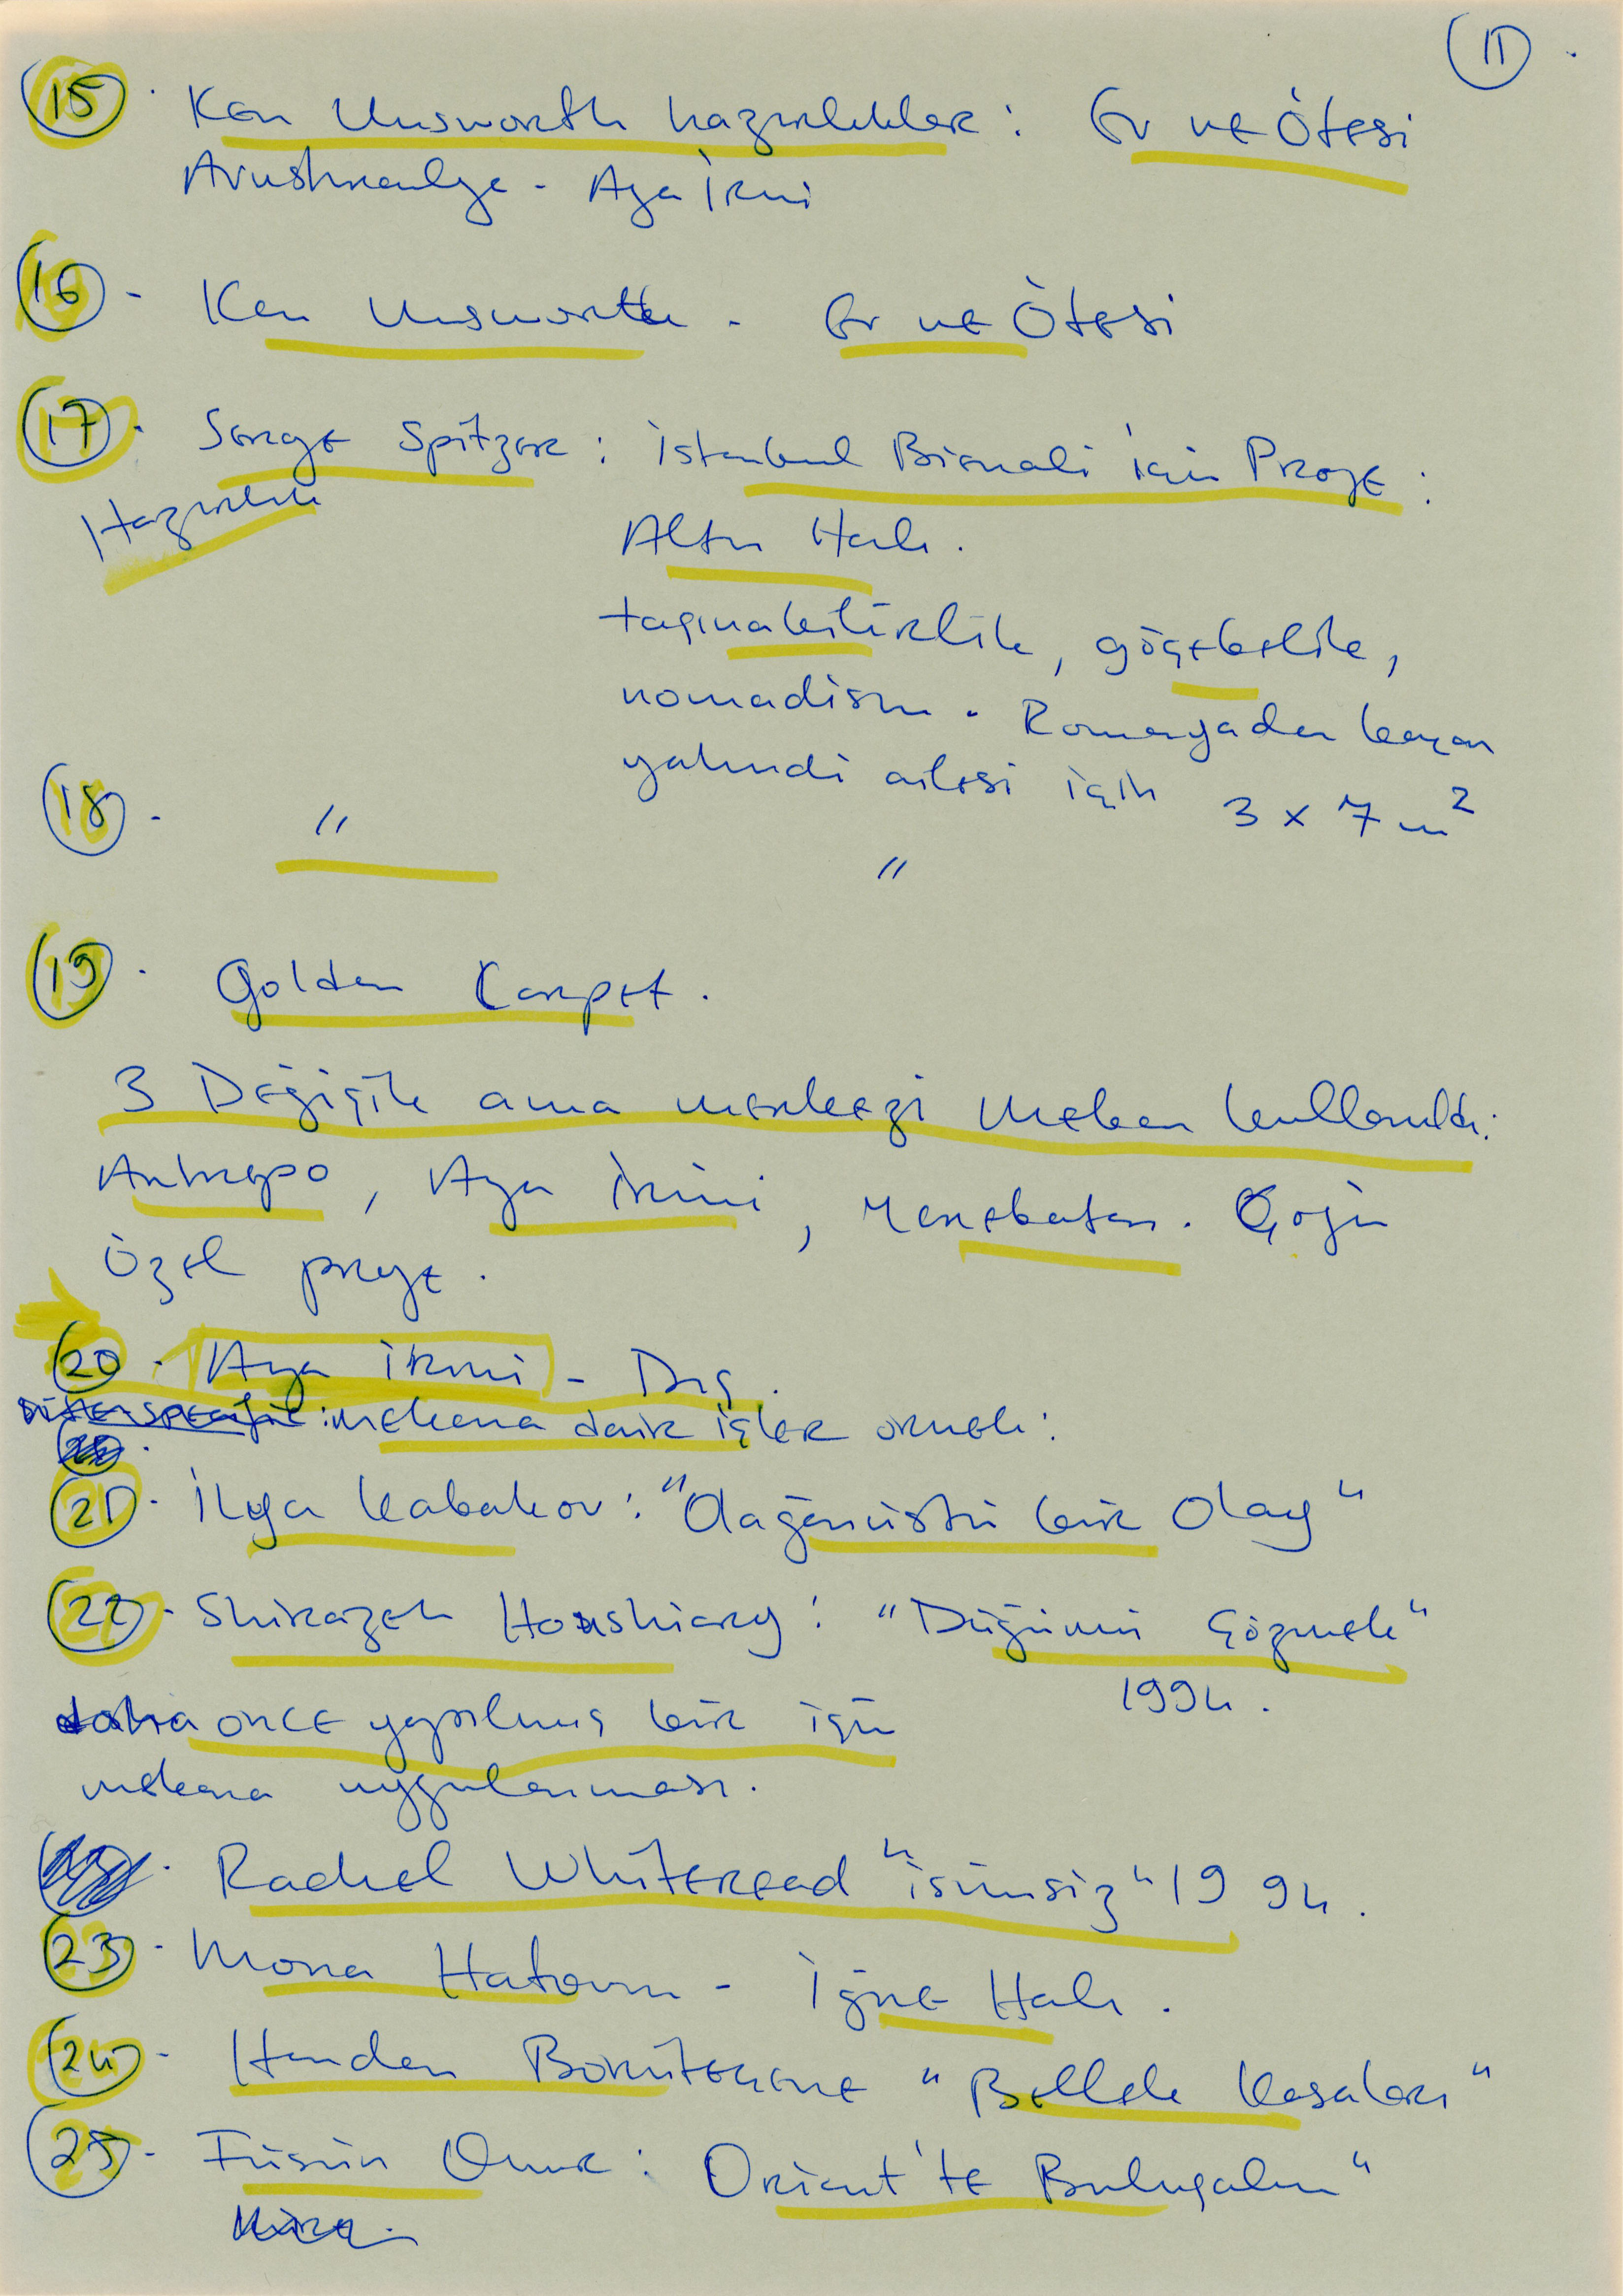 11.
15. Ken Unsworth hazırlıklar: Ev ve Ötesi
Avustralya - Aya İrini
16. Ken Unsworth - Ev ve Ötesi
17. Serge Spitzer: İstanbul Bienali için Proje:
Hazırlık
Altın Halı.
taşınabilirlik, göçebelik,
nomadism. Romanyadan kaçan
yahudi ailesi için 3 x 7 m²
18. " "
19. Golden Carpet.
3 Değişik ama merkezi mekan kullanıldı:
Antrepo, Aya İrini, Yerebatan. Çoğu
özel proje.
20. Aya İrini - Dış.
mekana dair işler örnek:
21. İlya Kabakov: "Olağanüstü bir Olay"
22. Shirazeh Houshiary: "Düğümü Çözmek"
1994.
daha önce yapılmış bir işin
mekana uygulanması.
Rachel Whiteread "isimsiz" 1994.
23. Mona Hatoum - İğne Halı.
24. Handan Börüteçene "Bellek Kasaları"
25. Füsun Onur: Orient'te Buluşalım"